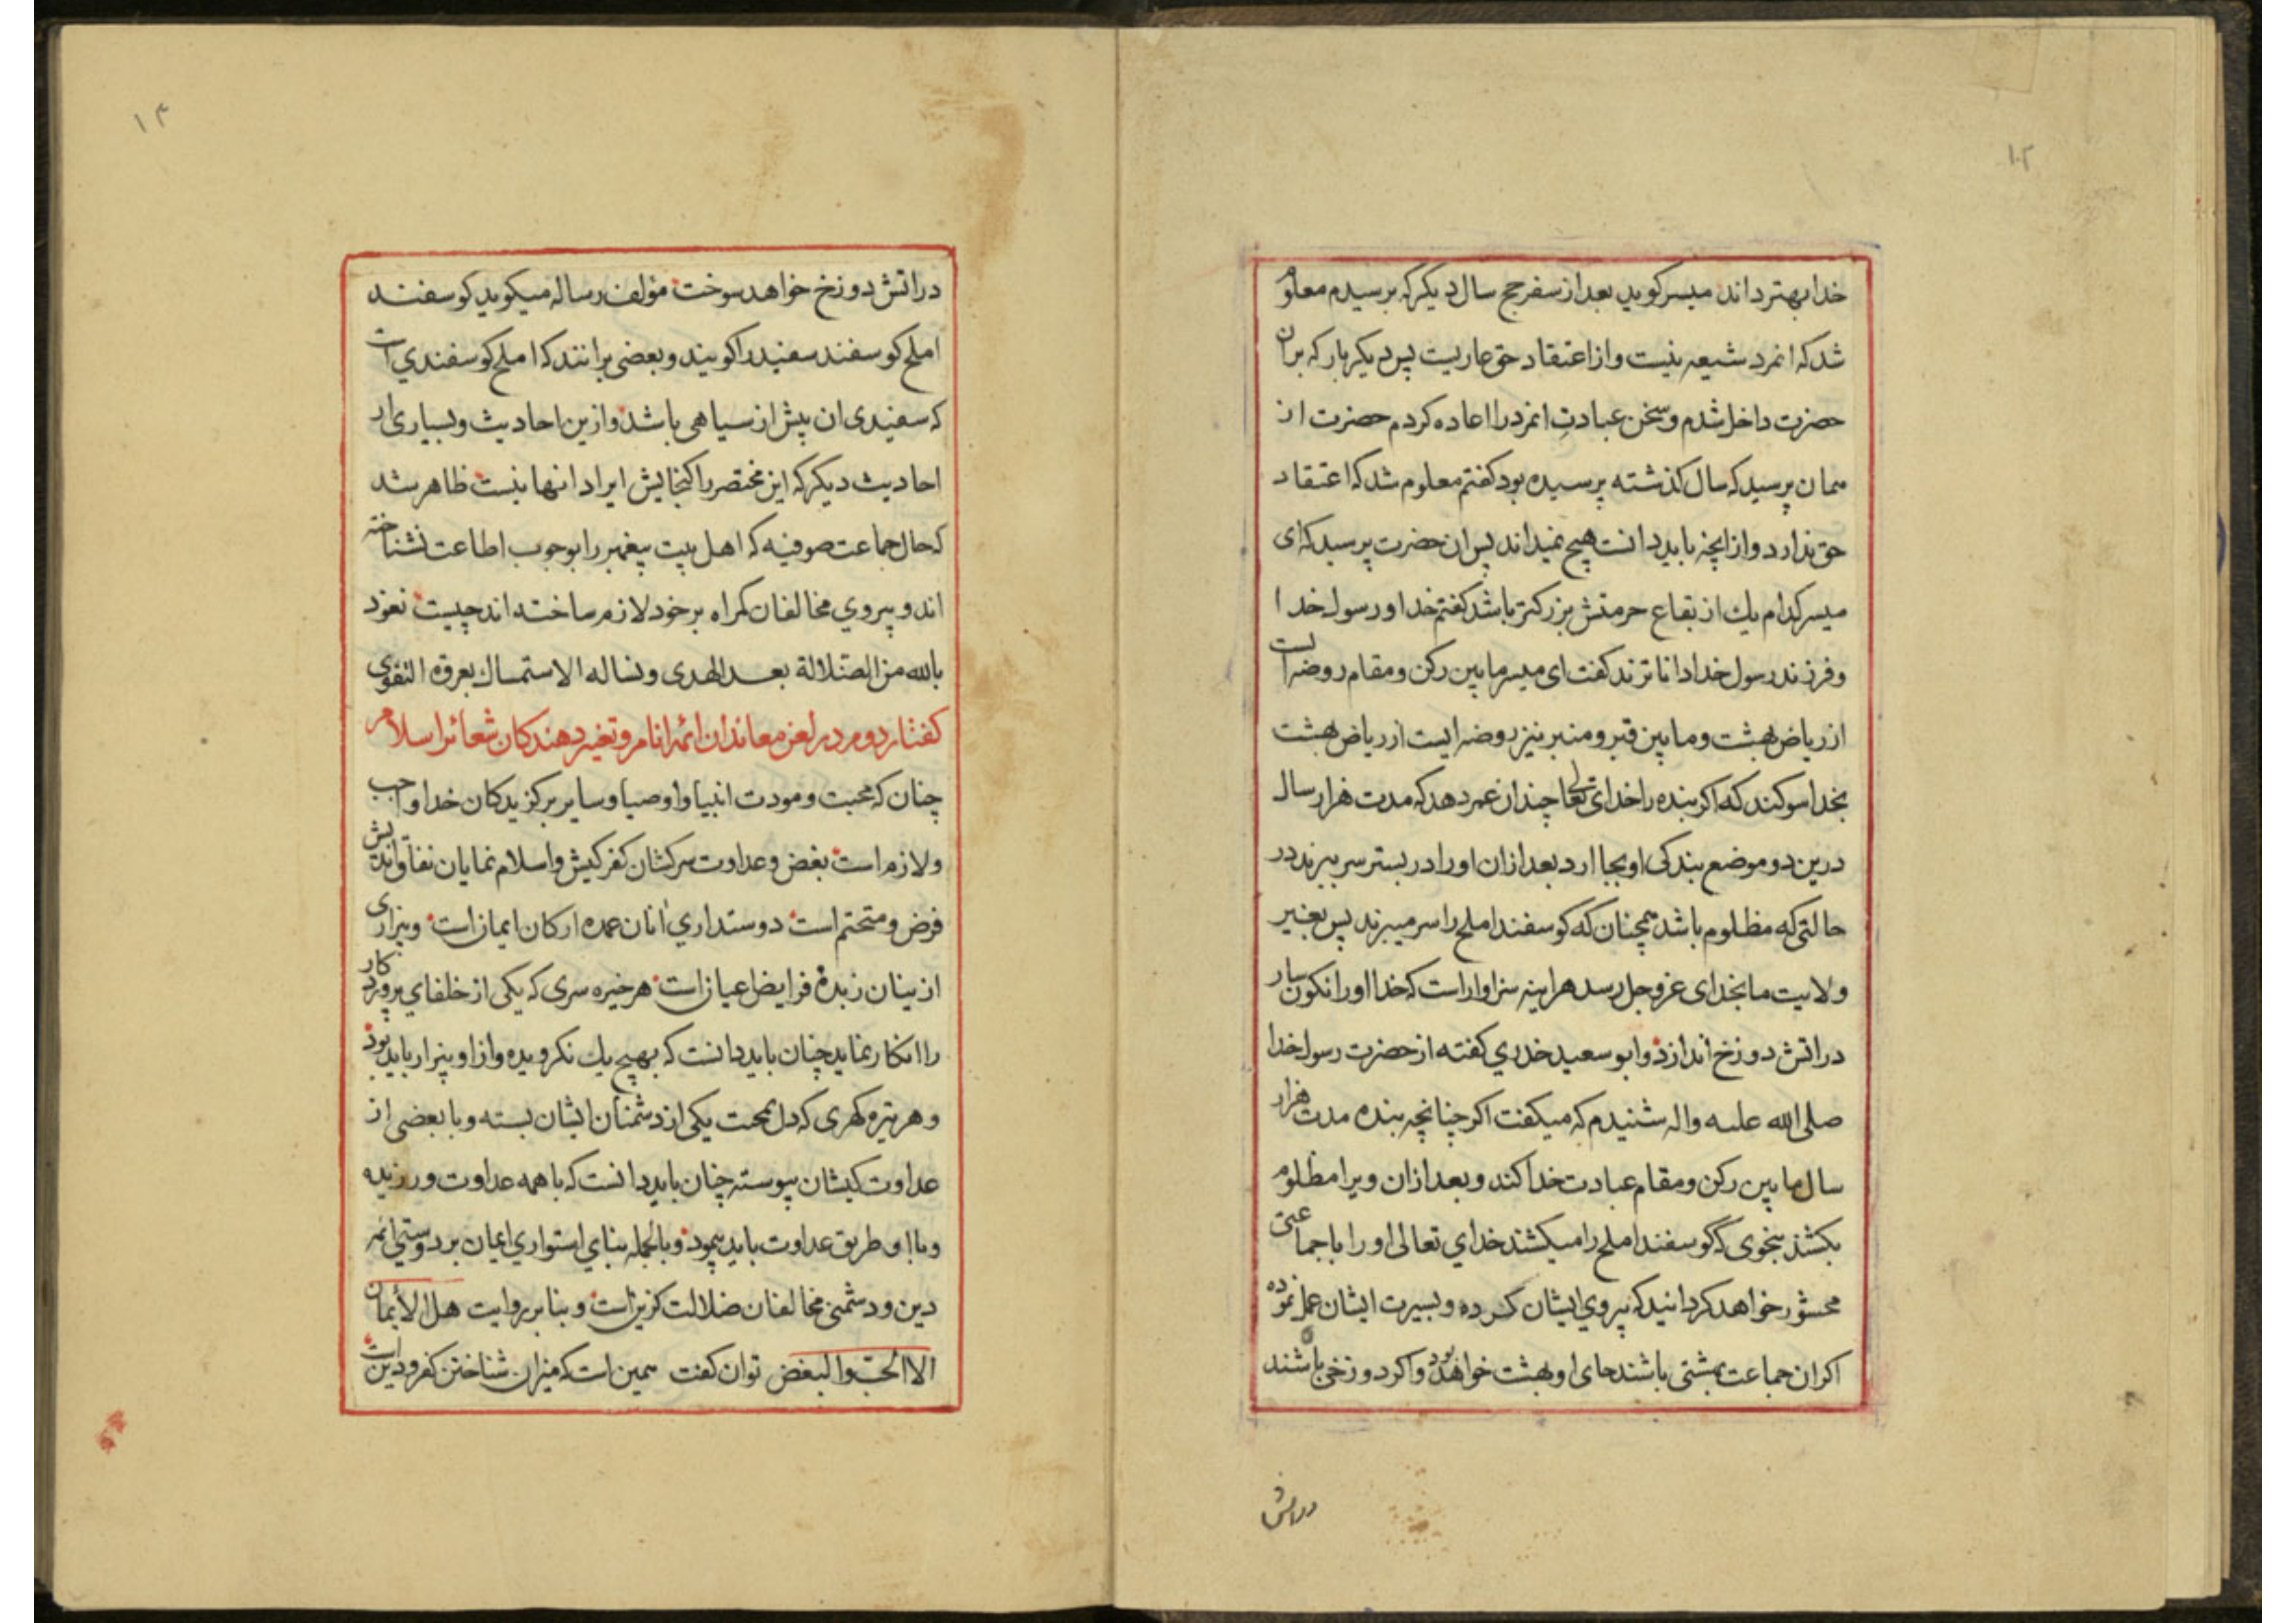 ۱۳
خدا بهتر داند میسر کوید بعد از سفر حج سال دیکر که برسیدم معلوم
شد که انمرد شیعه نیست و از اعتقاد حق عاریست پس دیکر بار که بران
حضرت داخل شدم و سخن عبادت انمرد را اعاده کردم حضرت از
همان پرسید که سال کذشته پرسیده بود کفتم معلوم شد که اعتقاد
حق ندارد و از انچه باید دانست هیچ نمیداند پس ان حضرت پرسید که ای
میسر کدام یک از بقاع حرمتش بزرکتر باشد کفتم خدا و رسول خدا
و فرزند رسول خدا داناترند کفت ای میسر مابین رکن و مقام روضه است
از ریاض بهشت و مابین قبر و منبر نیز روضه ایست از ریاض بهشت
بخدا سوکند که اکر بنده را خدای تعالی چندان عمر دهد که مدت هزار سال
درین دو موضع بندکی او بجا ارد بعد ازان او را در بستر سر ببرند در
حالتی که مظلوم باشد همچنان که کوسفند املح را سر میبرند پس بغیر
ولایت ما بخدای عز و جل رسد هراینه سزاوار است که خدا او را نکونسار
در اتش دوزخ اندازد و ابو سعید خدری کفته از حضرت رسول خدا
صلی الله علیه واله شنیدم که میکفت اکر چنانچه بنده مدت هزار
سال مابین رکن و مقام عبادت خدا کند و بعد ازان ویرا مظلوم
بکشند بنحوی که گوسفند املح را میکشند خدای تعالی او را با جماعتی
محشور خواهد کردانید که پیروی ایشان کرده و بسیرت ایشان عمل نموده
اکر ان جماعت بهشتی باشند جای او بهشت خواهد بود و اکر دوزخی باشند
در اتش
۱۴
در اتش دوزخ خواهد سوخت مؤلف رساله میکوید کوسفند
املح کوسفند سفید را کویند و بعضی برانند که املح کوسفندی است
که سفیدی ان بیش از سیاهی باشد و ازین احادیث و بسیاری از
احادیث دیکر که این مختصر را کنجایش ایراد انها نیست ظاهر شد
که حال جماعت صوفیه که اهل بیت پیغمبر را بوجوب اطاعت نشناخته
اند و پیروی مخالفان کمراه بر خود لازم ساخته اند چیست نعوذ
بالله من الضلالة بعد الهدی و نساله الاستمساک بعروة التقوی
کفتار دوم در لعن معاندان ائمه انام و تغییر دهندکان شعائر اسلام
چنان که محبت و مودت انبیا و اوصیا و سایر برکزیدکان خدا واجب
و لازم است بغض و عداوت سرکشان کفر کیش و اسلام نمایان نفاق اندیش
فرض و متحتم است دوستداری آنان عمده ارکان ایمان است و بیزاری
از اینان زبدهٔ فرایض اعیان است هر خیره سری که یکی از خلفای پروردکار
را انکار نماید چنان باید دانست که بهیچ یک نکرویده و از او بیزار باید بود
و هر تیره کهری که دل بمحبت یکی از دشمنان ایشان بسته و با بعضی از
عداوت کیشان پیوسته چنان باید دانست که با همه عداوت ورزیده
و با او طریق عداوت باید پیمود و بالجمله بنای استواری ایمان بر دوستی ائمه
دین و دشمنی مخالفان ضلالت کزین است و بنابر روایت هل الأیمان
الا الحب و البغض توان کفت همین است که میزان شناختن کفر و دین است